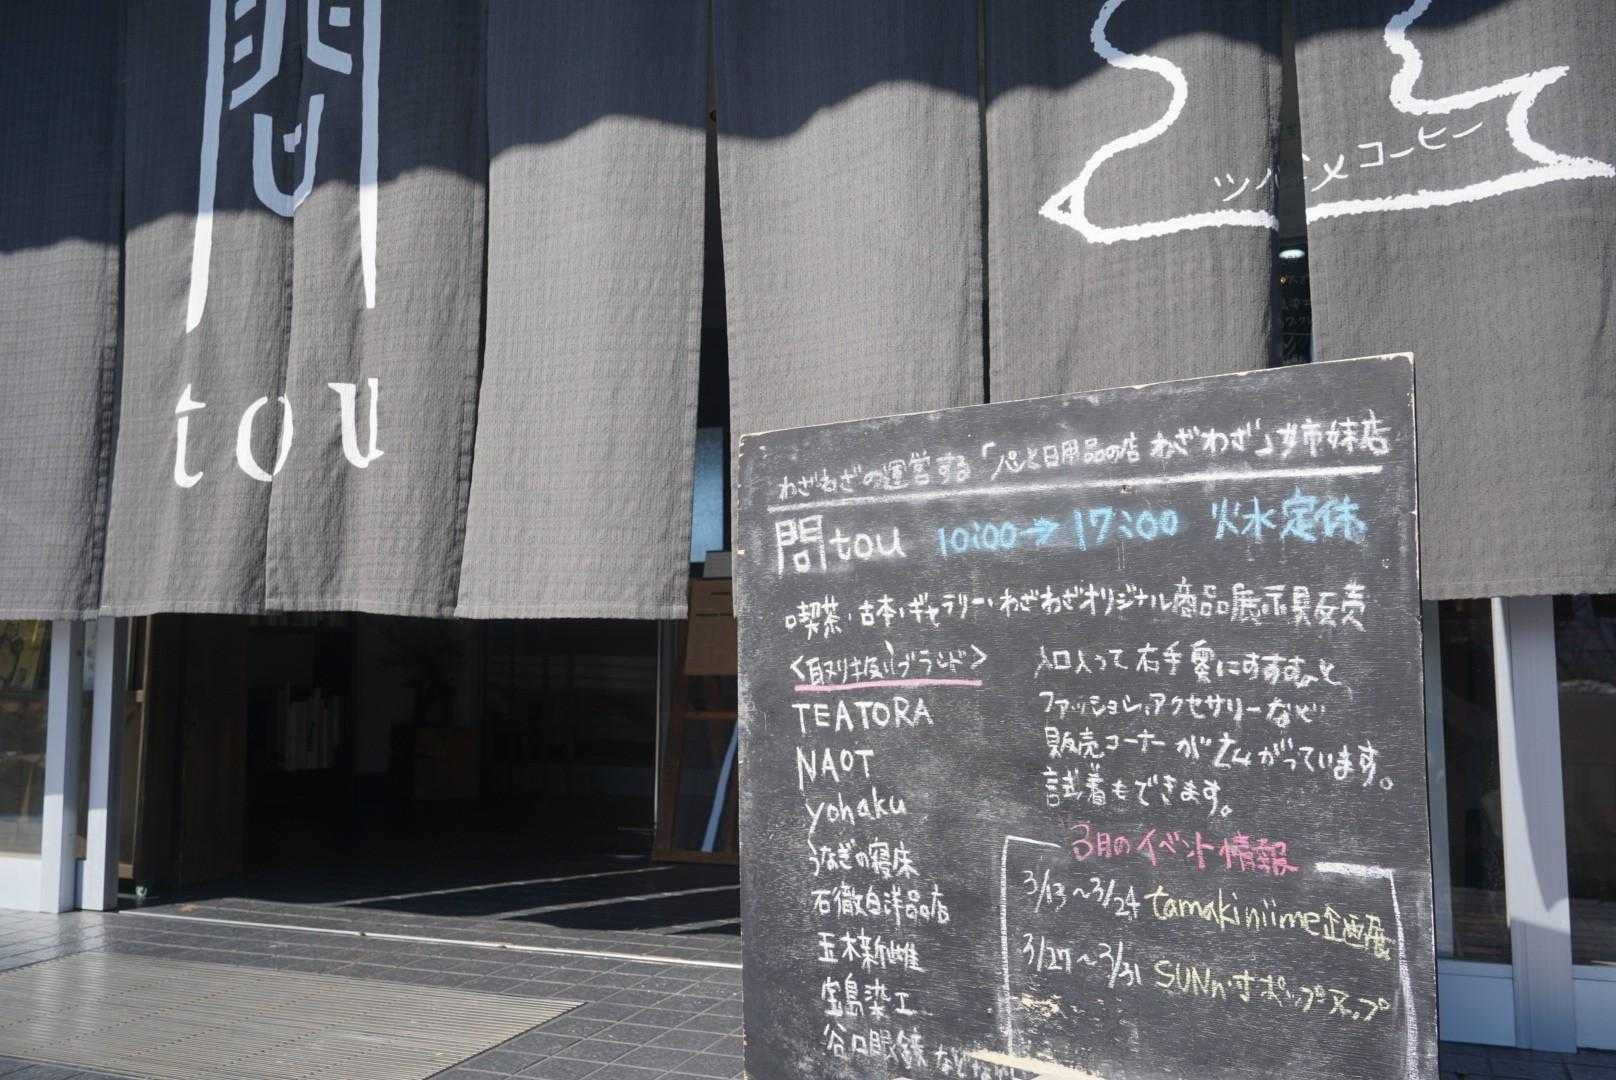 問
tou
ツバメコーヒー
わざわざの運営する「パンと日用品の店 わざわざ」姉妹店
問tou 10:00→17:00 火水定休
喫茶・古本・ギャラリー・わざわざオリジナル商品展示販売
<取り扱いブランド>
TEATORA
NAOT
yohaku
うなぎの寝床
石徹白洋品店
玉木新雌
宝島染工
谷口眼鏡 など
入口入って右手奥にすすむと
ファッション、アクセサリーなど
販売コーナーが広がっています。
試着もできます。
3月のイベント情報
3/13～3/24 tamakiniime企画展
3/27～3/31 SUNny寸ポップアップ